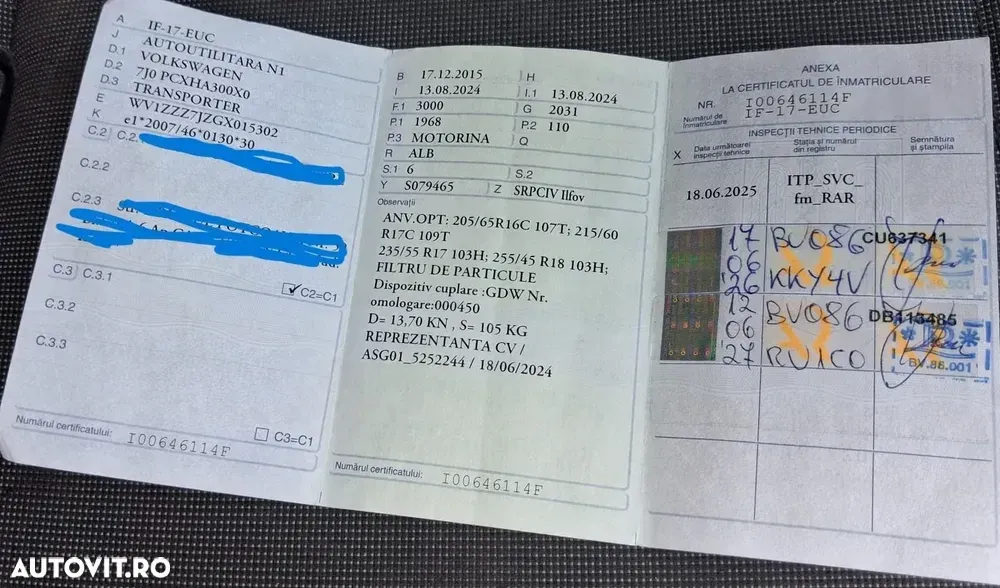 A IF-17-EUC
J AUTOUTILITARA N1
D.1 VOLKSWAGEN
D.2 7J0 PCXHA300X0
D.3 TRANSPORTER
E WV1ZZZ7JZGX015302
K e1*2007/46*0130*30
C.2 C.2.
C.2.2
C.2.3
C2=C1
C.3 C.3.1
C.3.2
C.3.3
C3=C1
Numărul certificatului: I00646114F
B 17.12.2015 H
I 13.08.2024 I.1 13.08.2024
F.1 3000 G 2031
P.1 1968 P.2 110
P.3 MOTORINA Q
R ALB
S.1 6 S.2
Y S079465 Z SRPCIV Ilfov
Observații
ANV.OPT: 205/65R16C 107T; 215/60
R17C 109T
235/55 R17 103H; 255/45 R18 103H;
FILTRU DE PARTICULE
Dispozitiv cuplare :GDW Nr.
omologare:000450
D= 13,70 KN , S= 105 KG
REPREZENTANTA CV /
ASG01_5252244 / 18/06/2024
Numărul certificatului: I00646114F
ANEXA
LA CERTIFICATUL DE ÎNMATRICULARE
NR. I00646114F
Numărul de înmatriculare IF-17-EUC
INSPECȚII TEHNICE PERIODICE
X Data următoarei inspecții tehnice Stația și numărul din registru Semnătura și ștampila
18.06.2025 ITP_SVC_
fm_RAR
17 BV086 CU637341
06
26 KKY4V
12 BV086 DB113485
06
27 RV1C0
BV.86.001
AUTOVIT.RO